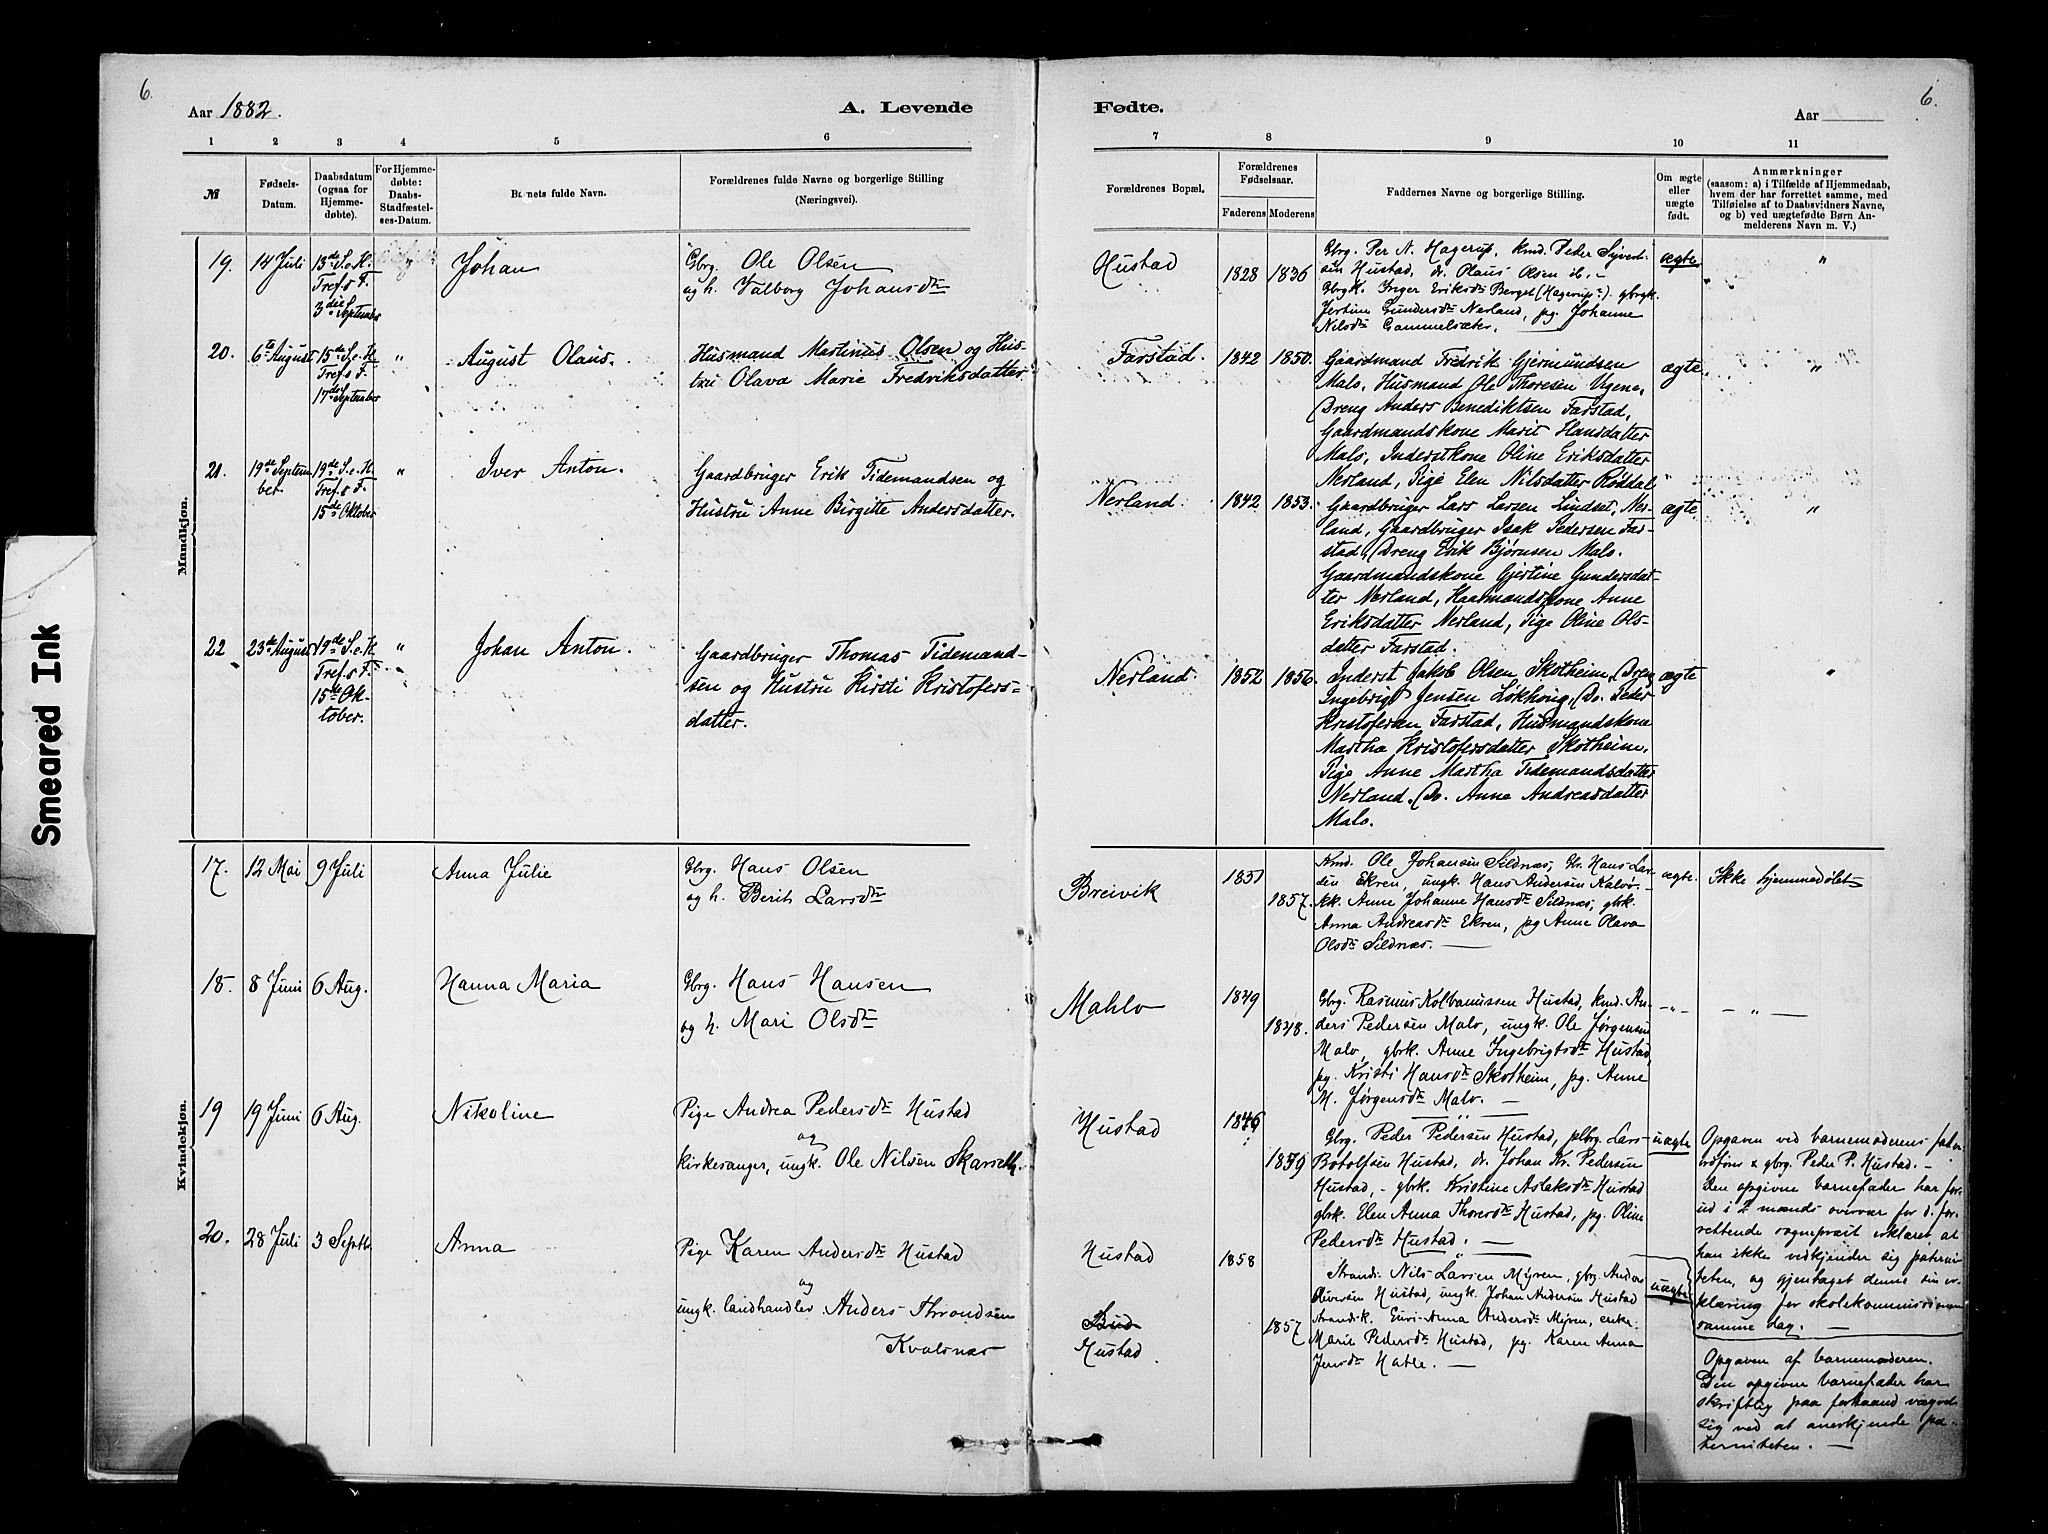 6.
Aar 1882.
A. Levende
Fødte.
Aar
6.
1 2 3 4 5 6
7 8 9 10 11
№
Fødsels-Datum.
Daabsdatum (ogsaa for Hjemmedøbte).
For Hjemmedøbte: Daabs-Stadfæstelses-Datum.
Barnets fulde Navn.
Forældrenes fulde Navne og borgerlige Stilling
(Næringsvei).
Forældrenes Bopæl.
Forældrenes Fødselsaar.
Faderens Moderens
Faddernes Navne og borgerlige Stilling.
Om ægte eller uægte født.
Anmærkninger
(saasom: a) i Tilfælde af Hjemmedaab,
hvem der har forrettet samme, med
Tilføielse af to Daabsvidners Navne,
og b) ved uægtefødte Børn Anmelderens Navn m. V.)
Mandkjøn.
19. 14 Juli
13de S. e. H.
Tref. s F.
3die September
Johan
Gbrg. Ole Olsen
og h. Valborg Johansdtr
Hustad
1828 1836
Gbrg. Per N. Hagerup, kmd. Peder Syvert-
sen Hustad, dr. Olaus Olsen ib. -
Gbrgk. Inger Eriksdtr Berget (Hagerup). gbrgk.
Jertine Gundersdtr Nerland, pg. Johanne
Nilsdtr Gammelsæter.
ægte
"
20. 6te August
15de S. e. H
Tref. s F.
17de September
"
August Olaus.
Husmand Martinus Olsen og Hus-
tru Olava Marie Fredriksdatter
Farstad.
1842 1850.
Gaardmand Fredrik Gjermundsen
Malo, Husmand Ole Thoresen Ugene,
Dreng Anders Benediktsen Farstad,
Gaardmandskone Marit Hansdatter
Malo, Inderstkone Oline Eriksdatter
Nerland, Pige Elen Nilsdatter Røddal
ægte.
"
21. 19de Septem
ber.
19de S. e. H.
Tref. s F.
15de Oktober
"
Iver Anton.
Gaardbruger Erik Tidemandsen og
Hustru Anne Birgitte Andersdatter.
Nerland.
1842 1853.
Gaardbruger Lars Larsen Lindset, Ner-
land, Gaardbruger Isak Pedersen Far-
stad, Dreng Erik Bjørnsen Malo.
Gaardmandskone Gjertine Gundersdat-
ter Nerland, Kaarmandskone Anne
Eriksdatter Nerland, Pige Oline Ols-
datter Farstad.
ægte
"
22. 23de August
19de S. e. H
Tref. s F.
15de Ok-
tober.
"
Johan Anton.
Gaardbruger Thomas Tidemand-
sen og Hustru Kirsti Kristofers-
datter.
Nerland.
1852 1856.
Inderst Jakob Olsen Skotheim, Dreng
Ingebrigt Jensen Løkhoug, Do. Peder
Kristofersen Farstad, Husmandskone
Martha Kristofersdatter Skotheim,
Pige Anne Martha Tidemandsdatter
Nerland, Do. Anne Andreasdatter
Malo.
ægte
"
Kvindekjøn.
17. 12 Mai 9 Juli
Anna Julie
Gbrg. Hans Olsen
og h. Berit Larsdtr
Breivik
1851
1857.
Kmd. Ole Johansen Sildnæs, Gbr. Hans Lar-
sen Ekren, ungk. Hans Andersen Kalvø.
kk. Anne Johanne Hansdtr Sildnæs, gbrk.
Anna Andreasdtr Ekren, pg Anne Olava
Olsdtr Sildnæs. —
ægte.
Ikke hjemmedøbt
18. 8 Juni 6 Aug.
Hanna Maria
Gbrg. Hans Hansen
og h. Mari Olsdtr
Mahlo
1849
1848.
Gbrg. Rasmus Kolbanussen Hustad, kmd. An-
ders Pedersen Malo, ungk. Ole Jørgensen
Malo, gbrk. Anne Ingebrigtsdtr Hustad
pg. Kristi Hansdtr Skotheim, pg. Anne
M. Jørgensdtr Malo. —
— " —
— " —
19 19 Juni 6 Aug.
Nikoline
Pige Andrea Pedersdtr Hustad
og
kirkesanger, ungk. Ole Nilsen Skarseth.
Hustad
1846
1859
Gbrg. Peder Pedersen Hustad, plbrg. Lars
Botolfsen Hustad, dr. Johan Kr. Pedersen
Hustad, - gbrk. Kristine Aslaksdtr Hustad
gbrk. Elen Anna Thoresdtr Hustad, pg. Oline
Pedersdtr Hustad. —
uægte
Opgaven ved barnemoderens fader
gbrg. Peder P. Hustad. -
Den opgivne barnefader har for-
ud i 2 mænds overvær for d. for-
rettende sogneprest erklæret, at
han ikke vedkjender sig paterni-
teten, og gjentaget denne sin er-
klæring for skolekommissionen
samme dag. —
20. 28 Juli 3 Septb.
Anna
Pige Karen Andersdtr Hustad
og
ungk. landhandler Anders Throndsen
Kvalsnæs
Hustad
Bud
Hustad.
1858
1857
Strands. Nils Larsen Myren, gbrg. Anders
Sivertsen Hustad, ungk. Johan Andersen Hustad
Strandsk. Guri-Anna Andersdtr Myren, enke
Marit Pedersdtr Hustad, pg. Karen Anna
Jensdtr Hatle. —
uægte
Opgaven af barnemoderen.
Den opgivne barnefader har
skriftlig paa forhaand vægret
sig ved at anerkjende pa-
terniteten. —
Smeared Ink